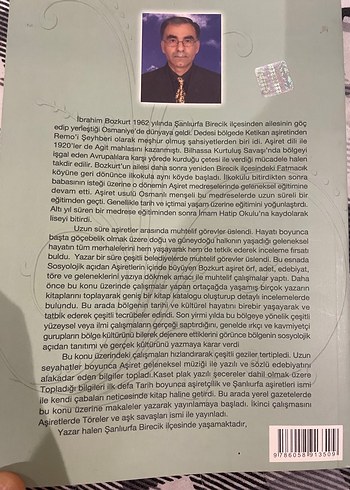 İbrahim Bozkurt 1962 yılında Şanlıurfa Birecik ilçesinden ailesinin göç
edip yerleştiği Osmaniye'de dünyaya geldi. Dedesi bölgede Ketikan aşiretinden
Remo'i Şeyhberi olarak meşhur olmuş şahsiyetlerden biri idi. Aşiret dili ile
1920'ler de Agit mahlasını kazanmıştı. Bilhassa Kurtuluş Savaşı'nda bölgeyi
işgal eden Avrupalılara karşı yörede kurduğu çetesi ile verdiği mücadele halen
takdir edilir. Bozkurt'un ailesi daha sonra yeniden Birecik ilçesindeki Fatmacık
köyüne geri dönünce ilkokulu aynı köyde başladı. İlkokulu bitirdikten sonra
babasının isteği üzerine o dönemin Aşiret medreselerinde geleneksel eğitimine
devam etti. Aşiret usulü Osmanlı menşeli bu medreselerde uzun süreli bir
eğitimden geçti. Genellikle tarih ve içtimai yaşam üzerine eğitimini yoğunlaştırdı.
Altı yıl süren bir medrese eğitiminden sonra İmam Hatip Okulu'na kaydolarak
liseyi bitirdi.
Uzun süre aşiretler arasında muhtelif görevler üslendi. Hayatı boyunca
başta göçebelik olmak üzere doğu ve güneydoğu halkının yaşadığı geleneksel
hayatın tüm merhalelerini hem yaşayarak hem de tetkik ederek inceleme fırsatı
buldu. Yazar bir süre çeşitli belediyelerde muhtelif görevler üslendi. Bu esnada
Sosyolojik açıdan Aşiretlerin içinde büyüyen Bozkurt aşiret örf, adet, edebiyat,
töre ve geleneklerini yazıya dökmek amacı ile muhtelif çalışmalar yaptı. Daha
önce bu konu üzerinde çalışmalar yapan ortaçağda yaşamış birçok yazarın
kitaplarını toplayarak geniş bir kitap katalogu oluşturup detaylı incelemelerde
bulundu. Bu arada bölgenin tarihi ve kültürel hayatını birebir yaşayarak ve
tatbik ederek çeşitli tecrübeler edindi. Son yirmi yılda bu bölgeye yönelik çeşitli
yüzeysel veya ilmi çalışmaların gerçeği saptırdığını, genelde ırkçı ve kavmiyetçi
gurupların bölge kültürünü bilerek dejenere ettiklerini görünce bölgenin sosyolojik
açıdan tanıtımı ve gerçek kültürünü yazmaya karar verdi
Bu konu üzerindeki çalışmaları hızlandırarak çeşitli geziler tertipledi. Uzun
seyahatler boyunca Aşiret geleneksel müziği ile yazılı ve sözlü edebiyatını
alakadar eden bilgiler topladı.Kaset plak yazılı şecereler dahil olmak üzere
Topladığı bilgileri ilk defa Tarih boyunca aşiretçilik ve Şanlıurfa aşiretleri ismi
ile kendi çabaları neticesinde kitap haline getirdi. Bu arada yerel gazetelerde
bu konu üzerine makaleler yazarak yayınlamaya başladı. İkinci çalışmasını
Aşiretlerde Töreler ve aşk savaşları ismi ile yayınladı.
Yazar halen Şanlıurfa Birecik ilçesinde yaşamaktadır,
9786058913509